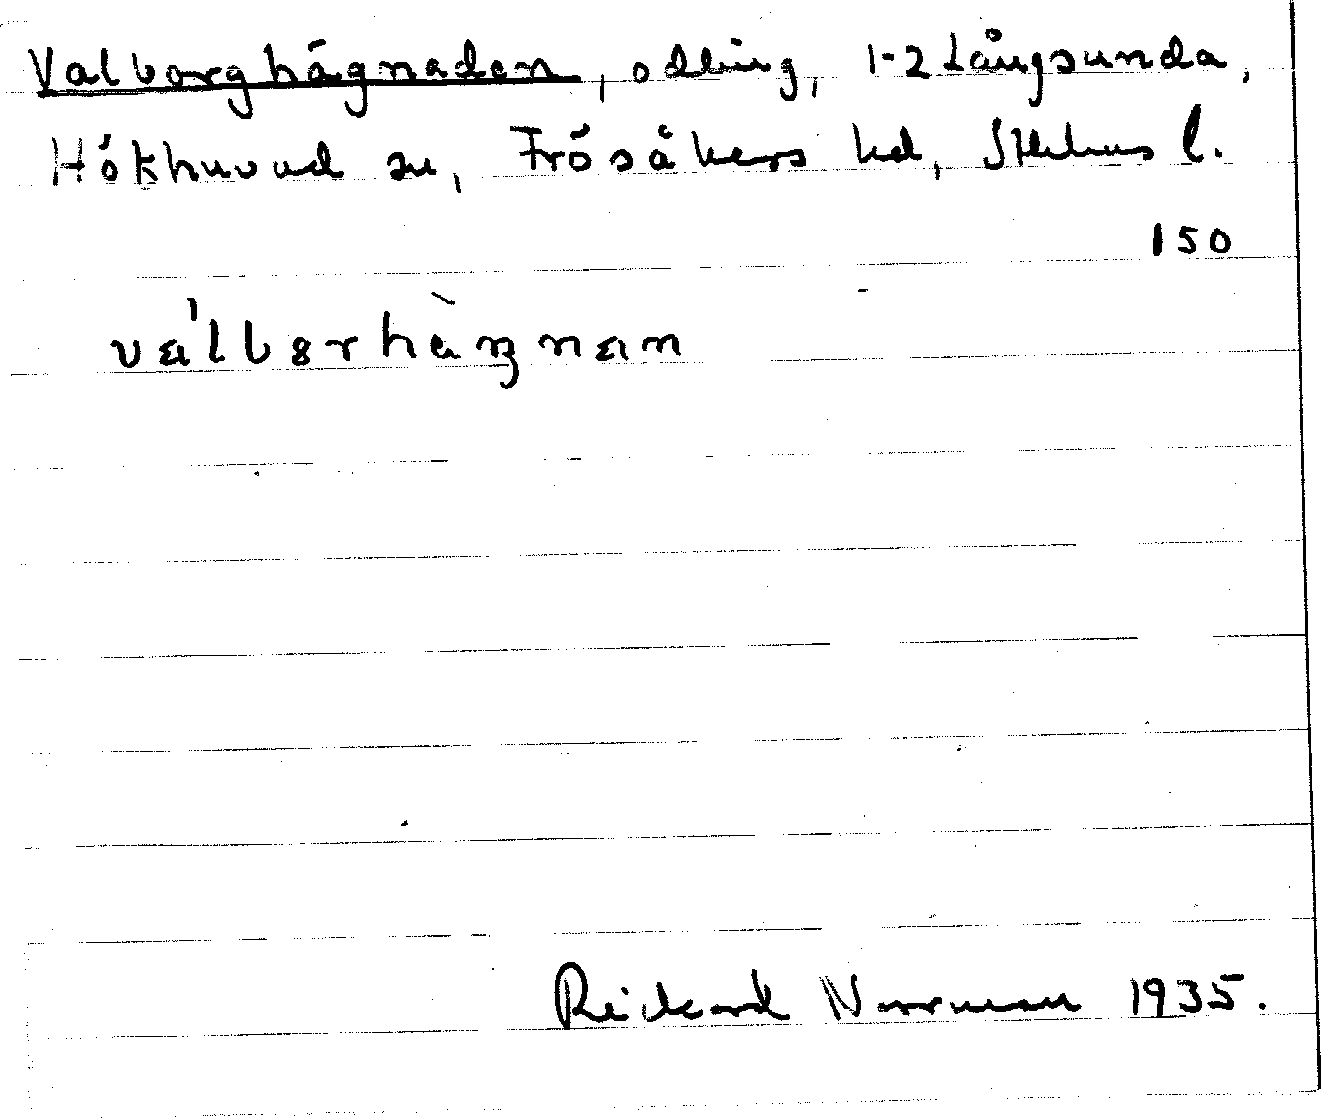 Valborghägnaden, odling, 1-2 Långsunda,
Hökhuvud sn, Frösåkers hd, Sthlms l.
150
válbɷrhàŋnan
Rickard Norrman 1935.